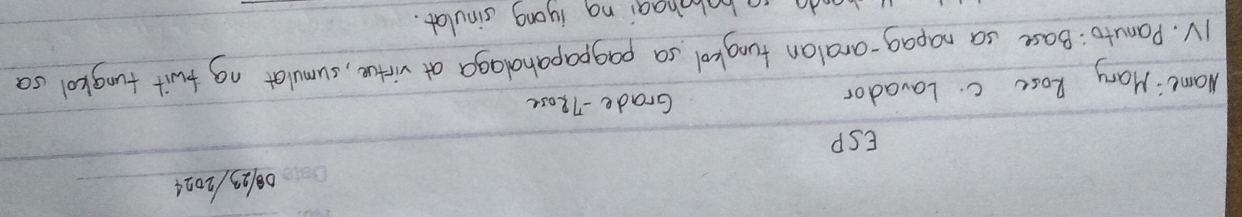 No.
Date
08/23/2024
ESP
Name: Mary Rose C. Lavador Grade-7Rose
IV. Panuto: Base sa napag-aralan tungkol sa pagpapahalaga at virtue, sumulat ng twit tungkol sa
sa bahagi ng iyong sinulat.